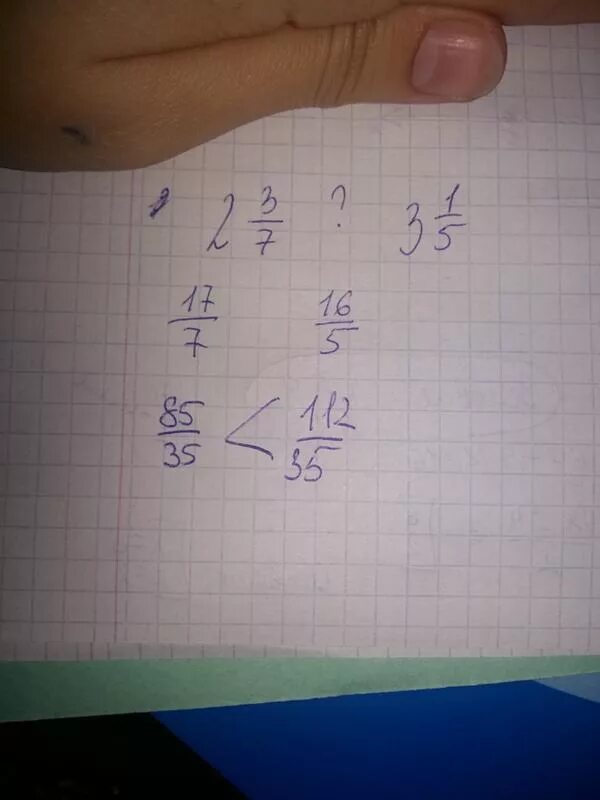 2 3/7 ? 3 1/5
17/7 16/5
85/35 < 112/35